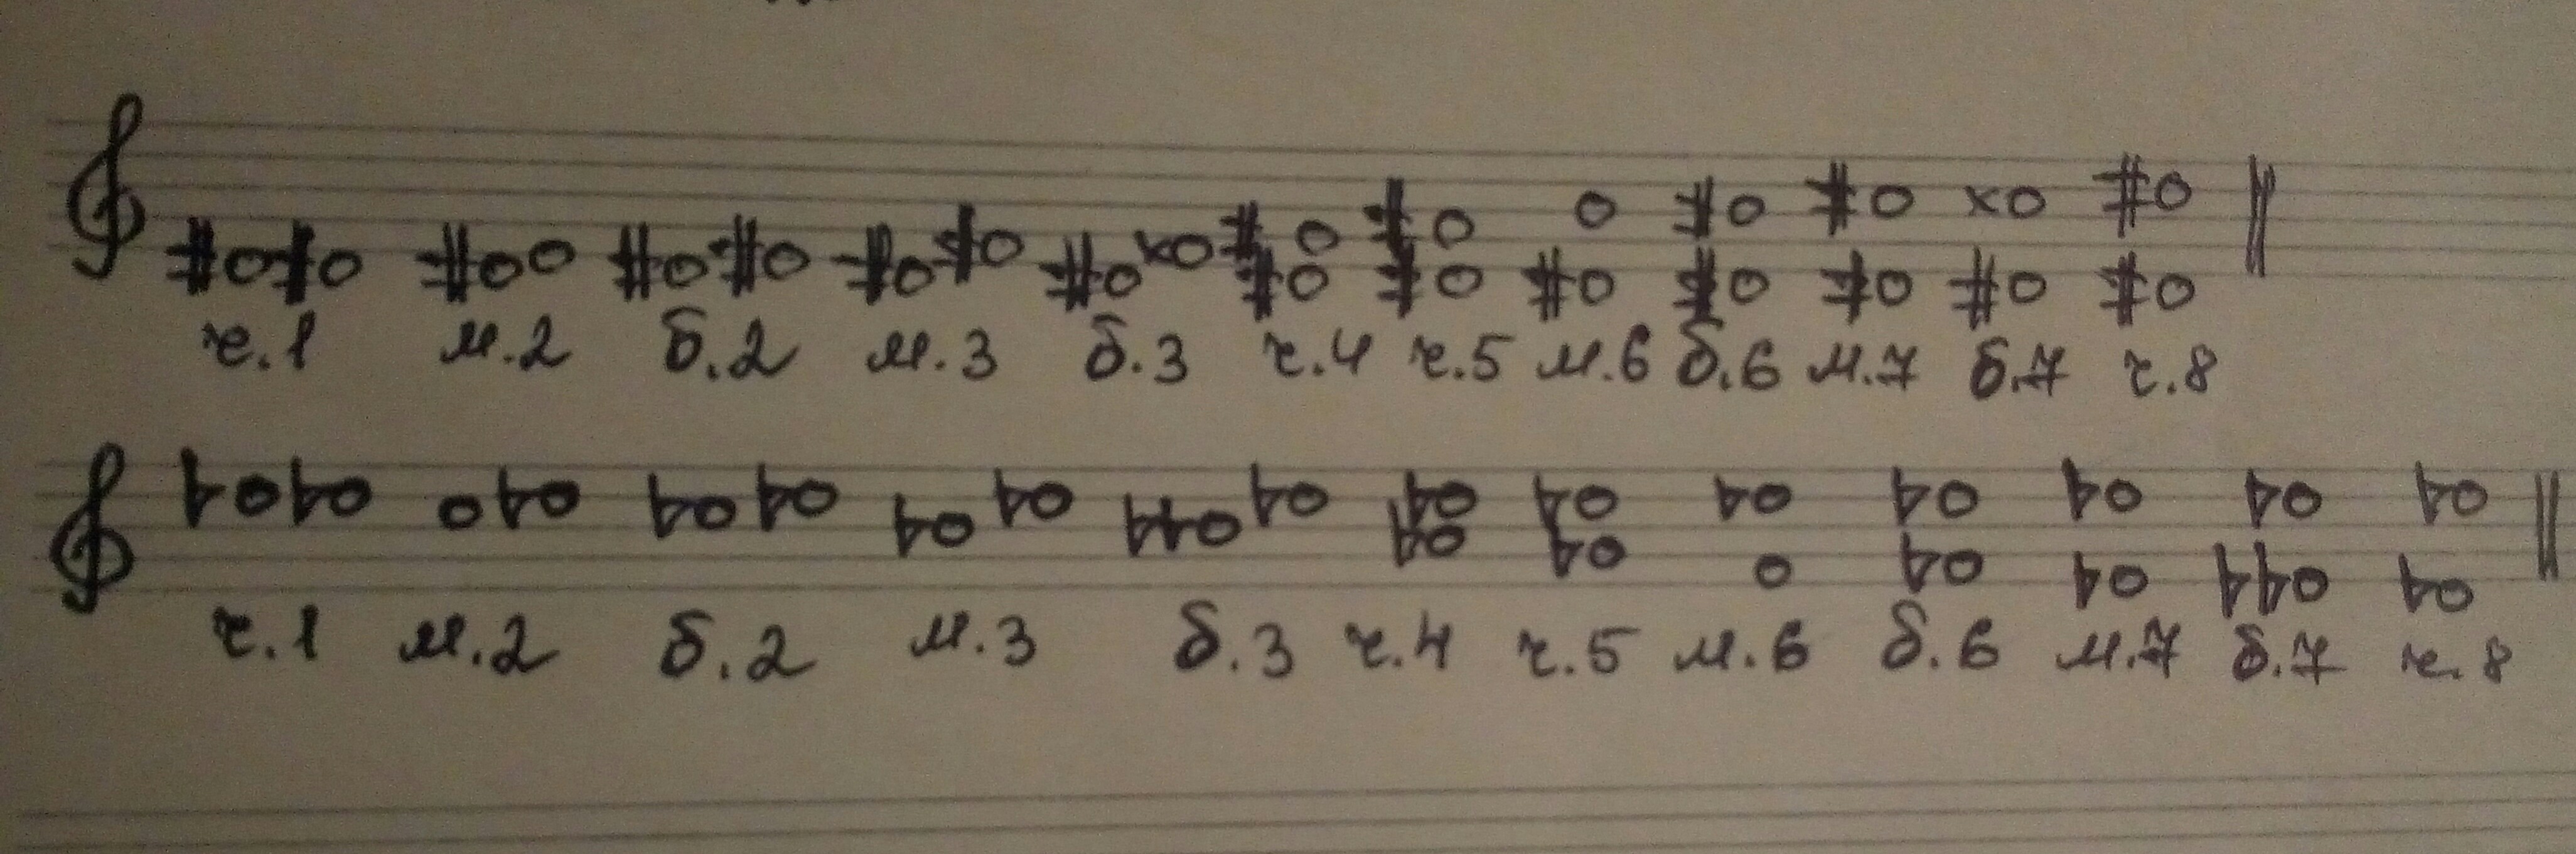 ч.1 м.2 б.2 м.3 б.3 ч.4 ч.5 м.6 б.6 м.7 б.7 ч.8
ч.1 м.2 б.2 м.3 б.3 ч.4 ч.5 м.6 б.6 м.7 б.7 ч.8